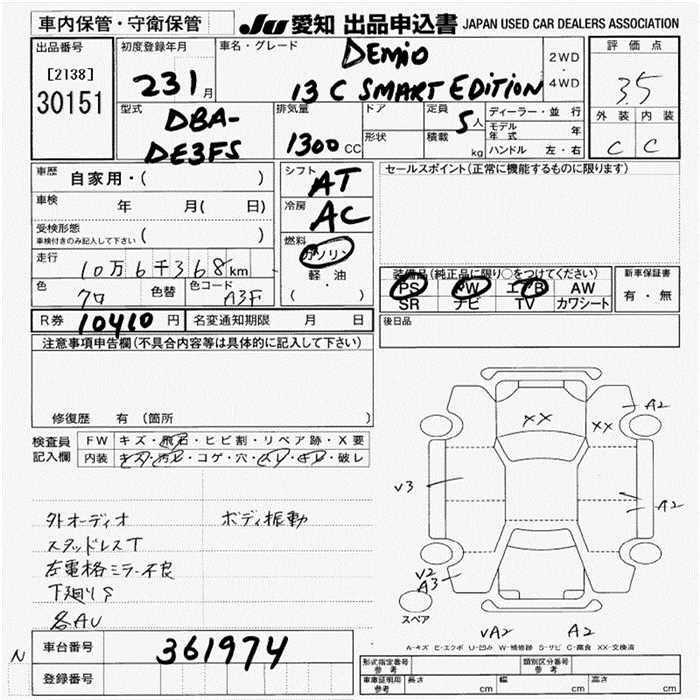 車内保管・守衛保管
JU 愛知 出品申込書 JAPAN USED CAR DEALERS ASSOCIATION
出品番号
[2138]
30151
初度登録年月
231月
車名・グレード
DEMIO
13 C SMART EDITION
2WD
・
4WD
評価点
3.5
外装 内装
C C
型式
DBA-
DE3FS
排気量
1300cc
ドア
形状
定員 5人
積載 kg
ディーラー・並行
モデル年式 年
ハンドル 左・右
車歴 自家用・( )
車検 年 月( 日)
受検形態
車検付きのみ記入して下さい ( )
走行 10万6千368km
色 クロ 色替 色コード A3F
シフト AT
冷房 AC
燃料
ガソリン
・
軽油
( ・ )
セールスポイント(正常に機能するものに限ります)
装備品(純正品に限り○をつけてください)
PS PW エアB AW
SR ナビ TV カワシート
新車保証書
有・無
R券 10410円 名変通知期限 月 日
後日品
注意事項申告欄(不具合内容等は具体的に記入して下さい)
修復歴 有(箇所 )
検査員記入欄
FW キズ・飛石・ヒビ割・リペア跡・X要
内装 キズ・汚レ・コゲ・穴・スレ・キレ・破レ
外オーディオ ボディ振動
スタッドレスT
左電格ミラー不良
下廻りS
各AU
XX
XX
A2
V3
A2
V2
A3
スペア
VA2 A2
A-キズ E-エクボ U-凹み W-補修跡 S-サビ C-腐食 XX-交換済
N
車台番号 361974
登録番号
形式指定番号 参考 類別区分番号 参考
車庫証明用 参考 長さ cm 幅 cm 高さ cm